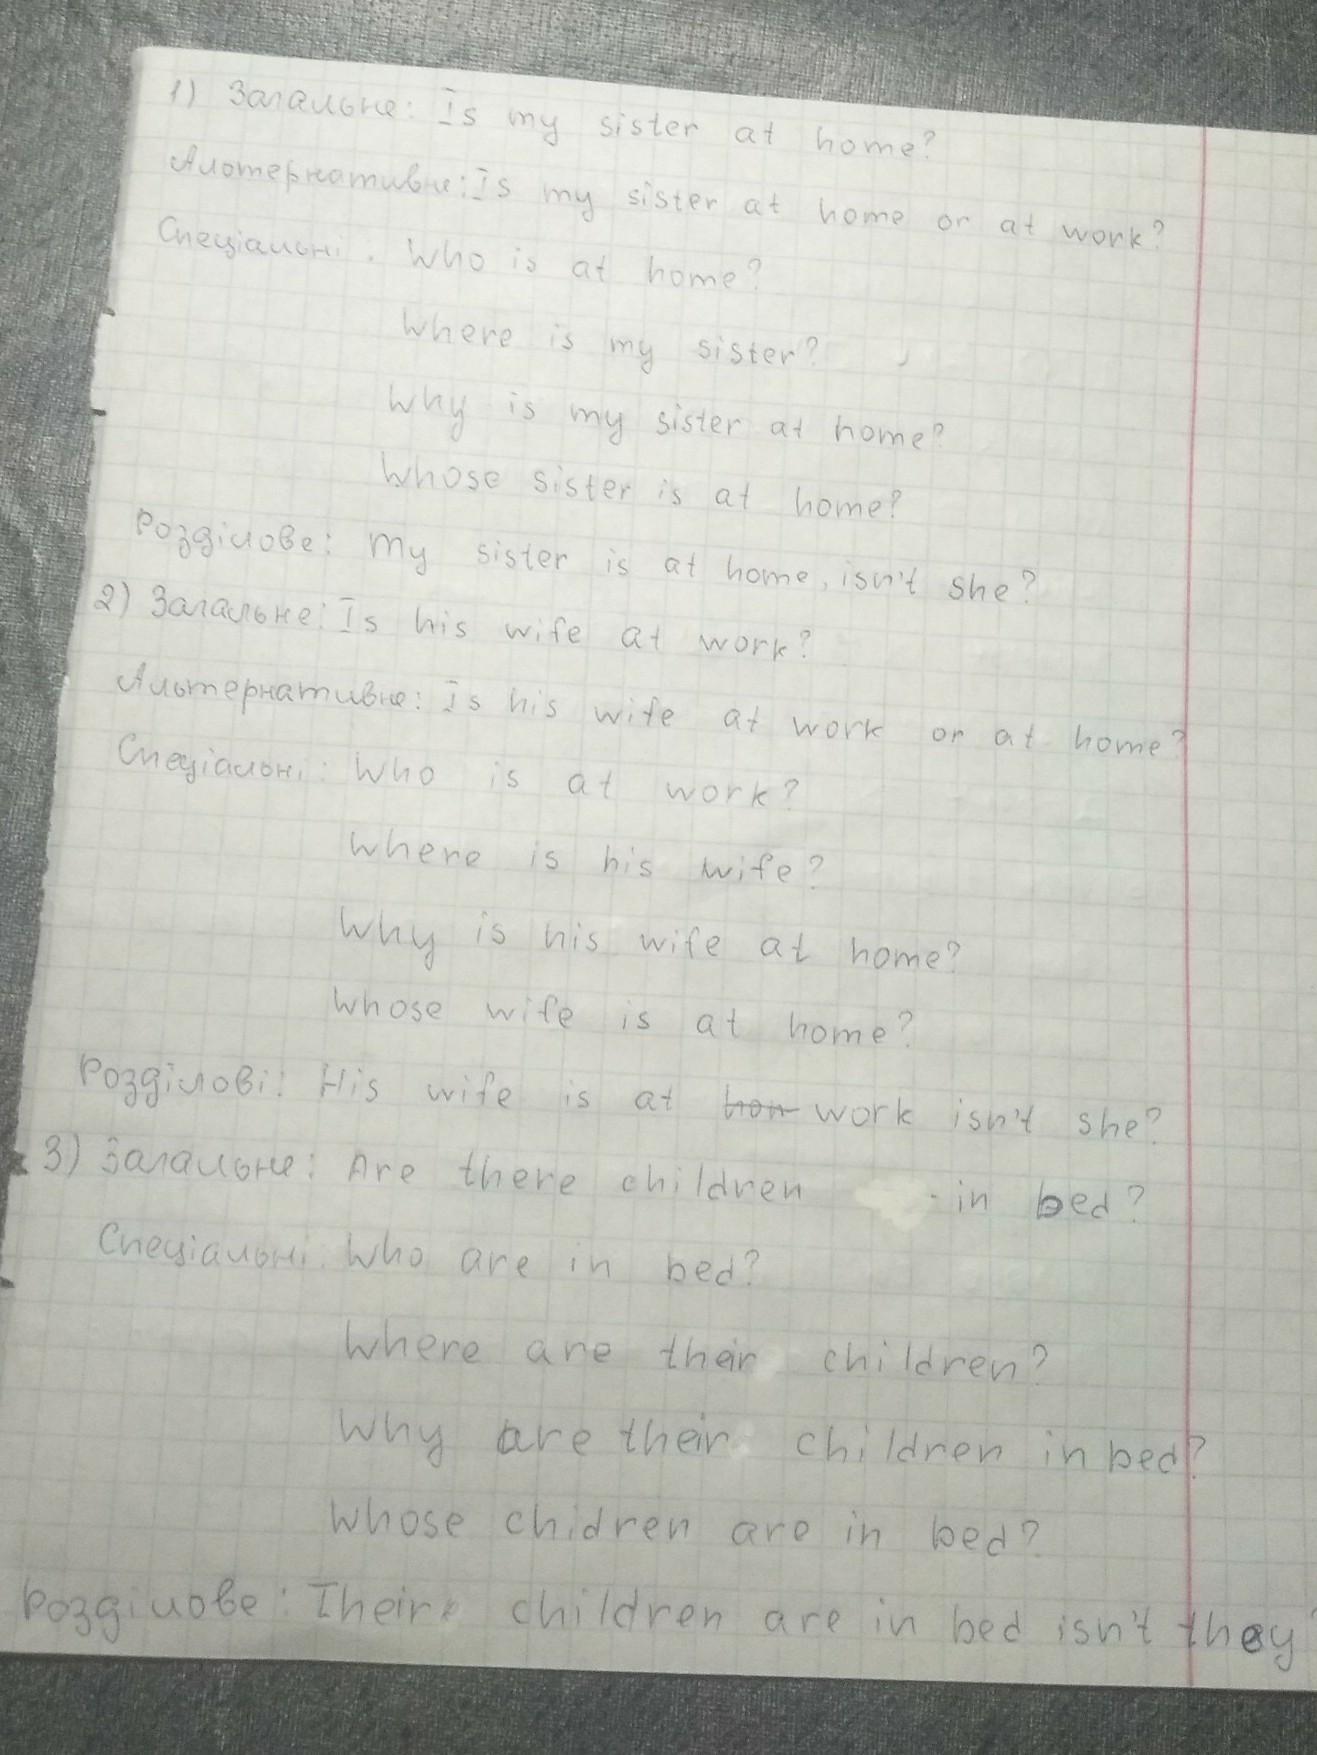 1) Загальне: Is my sister at home?
Альтернативне: Is my sister at home or at work?
Спеціальні. Who is at home?
Where is my sister?
Why is my sister at home?
Whose sister is at home?
Розділове: My sister is at home, isn't she?
2) Загальне: Is his wife at work?
Альтернативне: Is his wife at work or at home?
Спеціальні: Who is at work?
Where is his wife?
Why is his wife at home?
Whose wife is at home?
Розділові: His wife is at work isn't she?
3) Загальне: Are there children in bed?
Спеціальні: Who are in bed?
Where are their children?
Why are their children in bed?
Whose chidren are in bed?
Розділове: Their children are in bed isn't they?